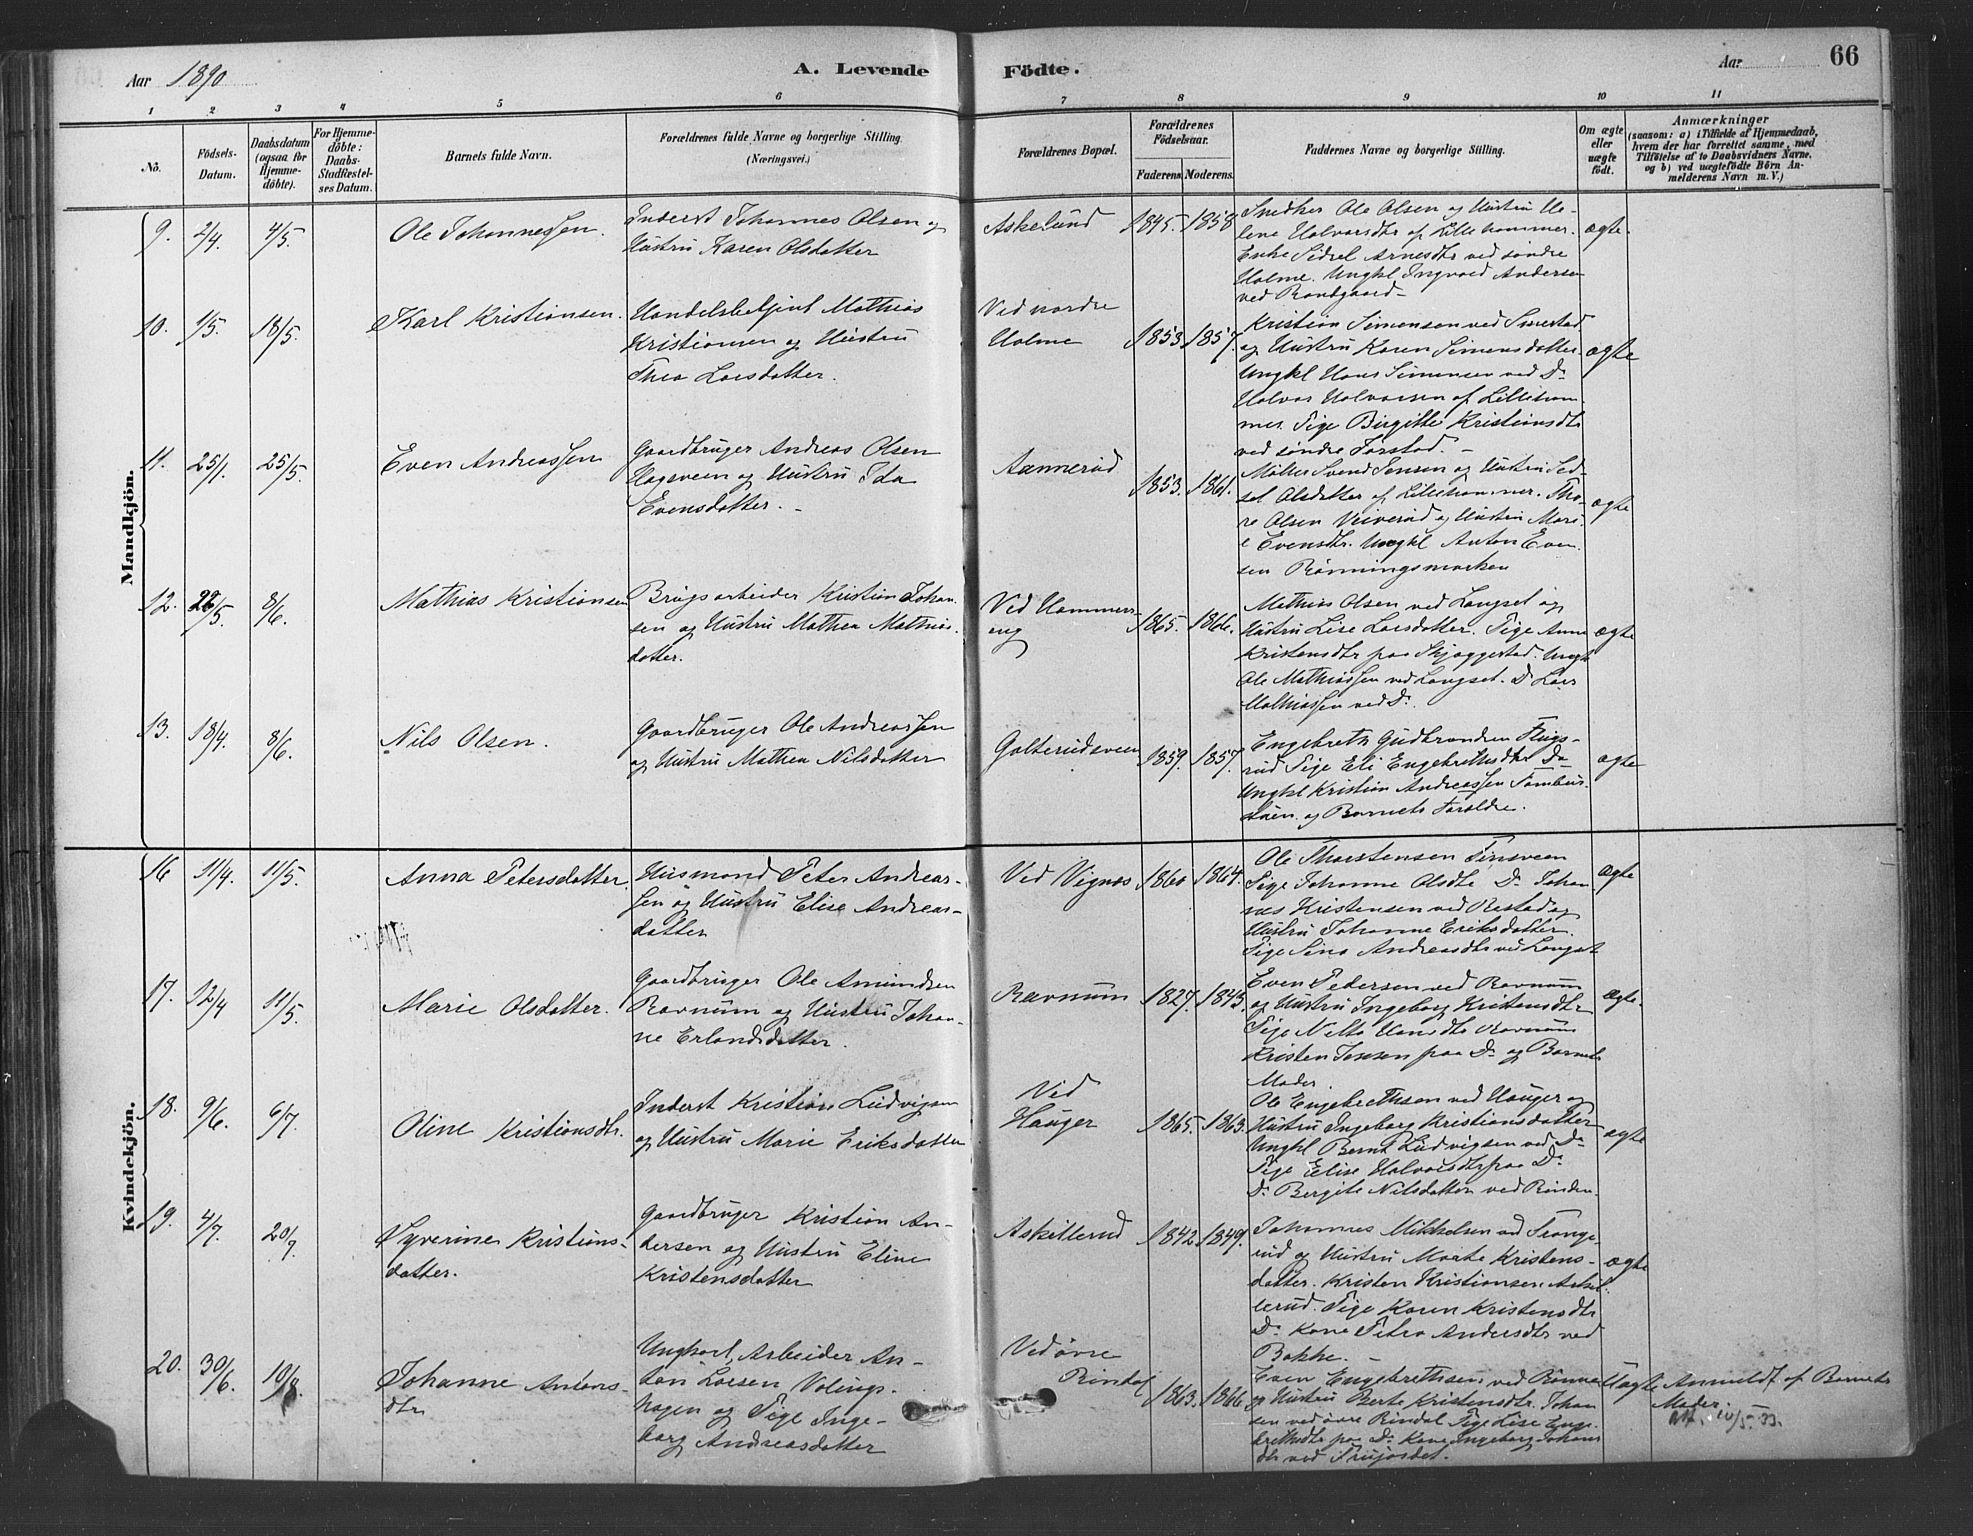 Aar 1890
A. Levende Födte.
Aar
66
1 2 3 4 5 6 7 8 9 10 11
No.
Födsels-
Datum.
Daabsdatum
(ogsaa for
Hjemme-
döbte).
For Hjemme-
döbte:
Daabs-
Stadfæstel-
ses Datum.
Barnets fulde Navn.
Forældrenes fulde Navne og borgerlige Stilling.
(Næringsvei.)
Forældrenes Bopæl.
Forældrenes
Födselsaar.
Faderens Moderens
Faddernes Navne og borgerlige Stilling.
Om ægte
eller
uægte
födt.
Anmærkninger
(saasom: a) i Tilfælde af Hjemmedaab,
hvem der har forrettet samme, med
Tilföielse af to Daabsvidners Navne,
og b) ved uægtefödte Börn An-
melderens Navn m. V.)
Mandkjön.
9. 2/4. 4/5. Ole Johannessen.
Inderst Johannes Olsen og
Hustru Karen Olsdatter
Askelund 1845. 1858
Snedker Ole Olsen og Hustru He-
lene Halvorsdtr af Lillehammer.
Enke Sidsel Arnesdtr ved söndre
Holme. Ungkl Ingvald Andersen
ved
ægte.
10. 1/5. 18/5. Karl Kristiansen.
Handelsbetjent Mathias
Kristiansen og Hustru
Thea Larsdatter.
Ved nordre
Holme 1853 1857.
Kristian Simensen ved Smestad
og Hustru Karen Simensdatter.
Ungkl Hans Simensen ved Do
Halvor Halvorsen af Lilleham-
mer. Pige Birgitte Kristiansdtr
ved söndre Forstad. -
ægte
11. 25/1. 25/5. Even Andreassen
Gaardbruger Andreas Olsen
Hagsveen og Hustru Ida
Evensdatter. -
Aannerud 1853. 1861.
Möller Svend Jensen og Hustru Sid-
sel Olsdatter af Lillehammer. Tho-
re Olsen Veiverud og Hustru Mari-
e Evensdtr. Ungkl Anton Even-
sen Rönningsmarken
ægte
12. 28/5. 8/6. Mathias Kristiansen
Brugsarbeider Kristian Johan-
sen og Hustru Mathea Mathias-
datter.
Ved Hammers-
eng 1865. 1866.
Mathias Olsen ved Langset og
Hustru Lise Larsdatter. Pige Anne
Kristensdtr paa Skjæggestad. Ungk
Ole Mathiassen ved Langset. Do Lars
Mathiassen ved Do.
ægte
13. 18/4. 8/6. Nils Olsen.
Gaardbruger Ole Andreassen
og Hustru Mathea Nilsdatter
Galterudsveen 1859. 1857.
Engebreth Gudbrandsen Flugs-
rud Pige Eli Engebrethsdtr Do
Ungkl Kristian Andreassen
og Barnets Foraldre.
ægte
Kvindekjön.
16 11/4. 11/5. Anna Petersdatter.
Husmand Peter Andreas-
sen og Hustru Elise Andreas-
datter
Ved Vignes 1860 1864.
Ole Thorstensen Finsveen
Pige Johanne Olsdtr Do Johan-
nes Kristensen ved Restad og
Hustru Johanne Eriksdatter.
Pige Sina Andreasdtr ved Langset
ægte
17. 12/4 11/5. Marie Olsdatter.
Gaardbruger Ole Amundsen
Ravnum og Hustru Johan-
ne Erlandsdatter.
Ravnum 1827. 1843.
Even Pedersen ved Ravnum
og Hustru Ingeborg Kristensdtr
Pige Nilta Hansdtr Ravnum
Kristen Jensen paa Do og Barnets
Moder.
ægte.
18. 9/6. 6/7. Oline Kristiansdtr.
Inderst Kristian Ludvigsen
og Hustru Marie Eriksdatter
Ved
Hauger 1865. 1863.
Ole Engebrethsen ved Hauger og
Hustru Ingeborg Kristiansdatter
Ungkl Bernt Ludvigsen ved Do
Pige Elise Halvorsdtr paa Do.
Do Bergite Nilsdatter ved Rinden.
ægte
19. 4/7. 20/9. Syverine Kristians-
datter.
Gaardbruger Kristian An-
dersen og Hustru Eline
Kristensdatter
Askillerud 1842 1849.
Johannes Mikkelsen ved
og Hustru Marte Kristens-
datter. Kristen Kristiansen Askil-
lerud. Pige Karen Kristensdtr
Do. Kone Petra Andersdtr ved
Bakke. -
ægte
20. 30/6. 10/8. Johanne Antons-
dtr
Ungkarl, Arbeider An-
ton Larsen Volings-
hagen og Pige Inge-
borg Andreasdatter
Ved övre
Rindal 1863. 1866
Even Engebrethsen ved
og Hustru Berte Kristensdtr. Johan
sen ved övre Rindal Pige Lise Enge-
brethsdtr paa Do. Kone Ingeborg Johans
dtr ved
Uægte Anmeldt af Barnets
Moder.
10/5-33.